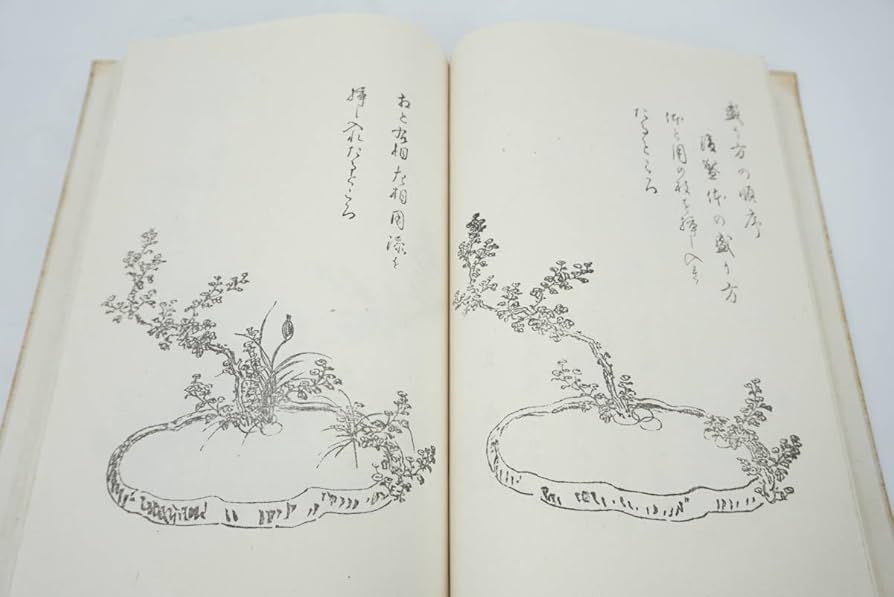 盛り方の順序
盛体の盛り方
体と用の枝を挿し入れ
たるところ
相右相左相用添を
挿し入れたるところ